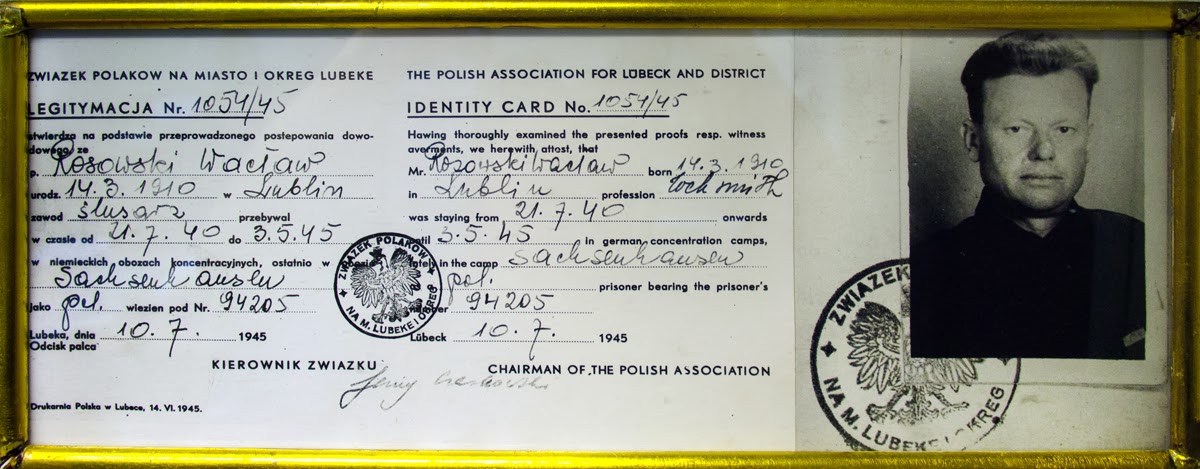 ZWIAZEK POLAKOW NA MIASTO I OKREG LUBEKE
LEGITYMACJA Nr. 1054/45
stwierdza na podstawie przeprowadzonego postepowania dowo-
dowego ze
p. Rosowski Wacław
urodz. 14.3.1910 w Lublin
zawod ślusarz przebywal
w czasie od 21.7.40 do 3.5.45
w niemieckich obozach koncentracyjnych, ostatnio w obozie
Sachsenhausen
jako pol. wiezien pod Nr. 94205
Lubeka, dnia 10.7. 1945
Odcisk palca
KIEROWNIK ZWIAZKU
Drukarnia Polska w Lubece, 14. VI. 1945.
THE POLISH ASSOCIATION FOR LÜBECK AND DISTRICT
IDENTITY CARD No. 1054/45
Hawing thoroughly examined the presented proofs resp. witness
averments, we herewith attost, that
Mr. Rosowski Wacław born 14.3.1910
in Lublin profession lockmith
was staying from 21.7.40 onwards
until 3.5.45 in german concentration camps,
lately in the camp Sachsenhausen
pol. prisoner bearing the prisoner's
number 94205
Lübeck 10.7. 1945
CHAIRMAN OF THE POLISH ASSOCIATION
Jerzy
ZWIĄZEK POLAKÓW
NA M. LUBEKE I OKREG
ZWIĄZEK
NA M. LUBEKE I OKREG